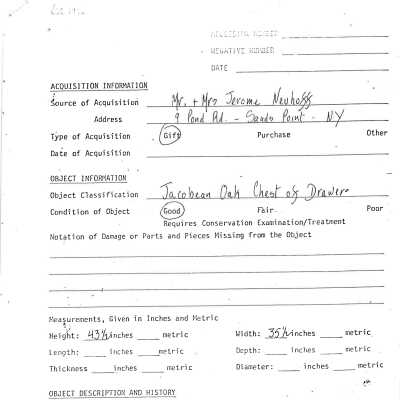 ACCESSION NUMBER
NEGATIVE NUMBER
DATE
ACQUISITION INFORMATION
Source of Acquisition Mr. + Mrs Jerome Neuhoff
Address 9 Pond Rd. - Sands Point - NY
Type of Acquisition Gift Purchase Other
Date of Acquisition
OBJECT INFORMATION
Object Classification Jacobean Oak Chest of Drawers
Condition of Object Good Fair Poor
Requires Conservation Examination/Treatment
Notation of Damage or Parts and Pieces Missing from the Object
Measurements, Given in Inches and Metric
Height: 43½ inches metric Width: 35½ inches metric
Length: inches metric Depth: inches metric
Thickness inches metric Diameter: inches metric
OBJECT DESCRIPTION AND HISTORY